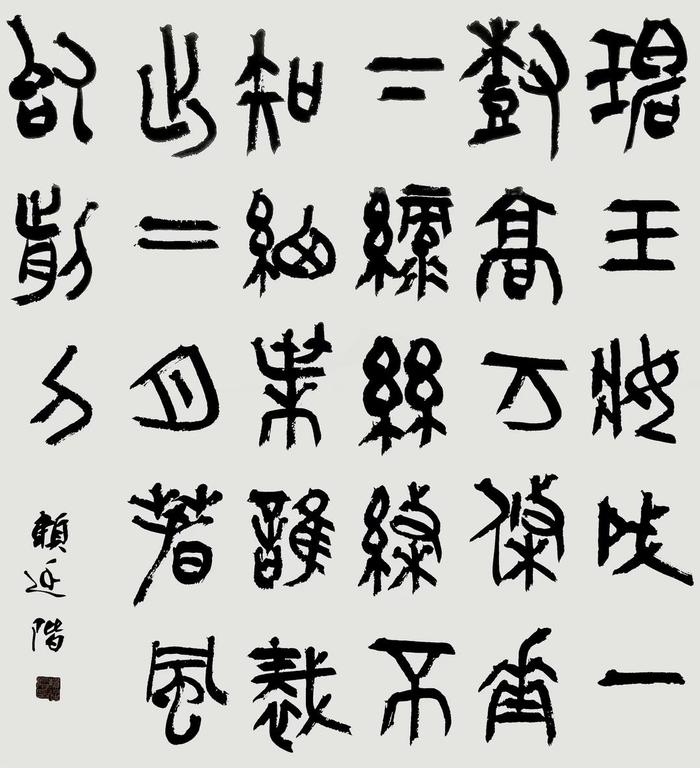 碧玉妝成一
樹高万條垂
下綠絲絛不
知細葉誰裁
出二月春風
似剪刀
賴近階